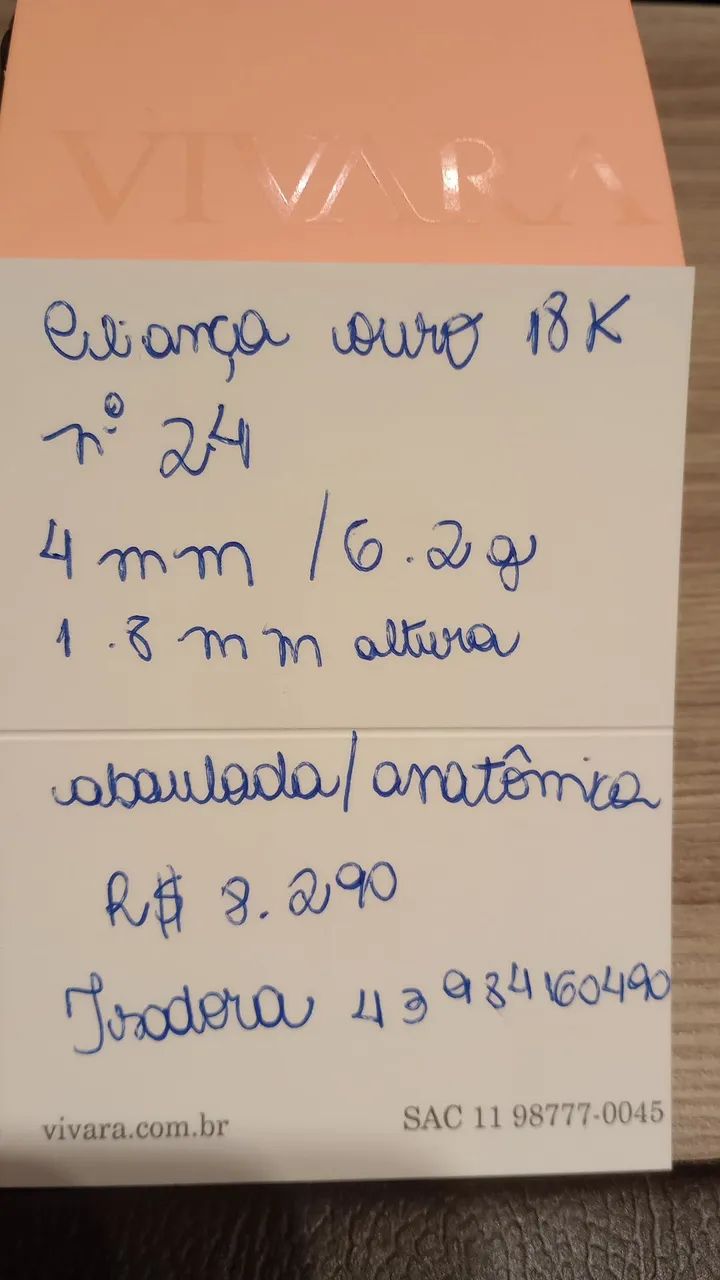 VIVARA
Aliança ouro 18K
nº 24
4 mm / 6.2 g
1.8 mm altura
abaulada/anatômica
R$ 8.290
Isadora 43 984160490
vivara.com.br
SAC 11 98777-0045